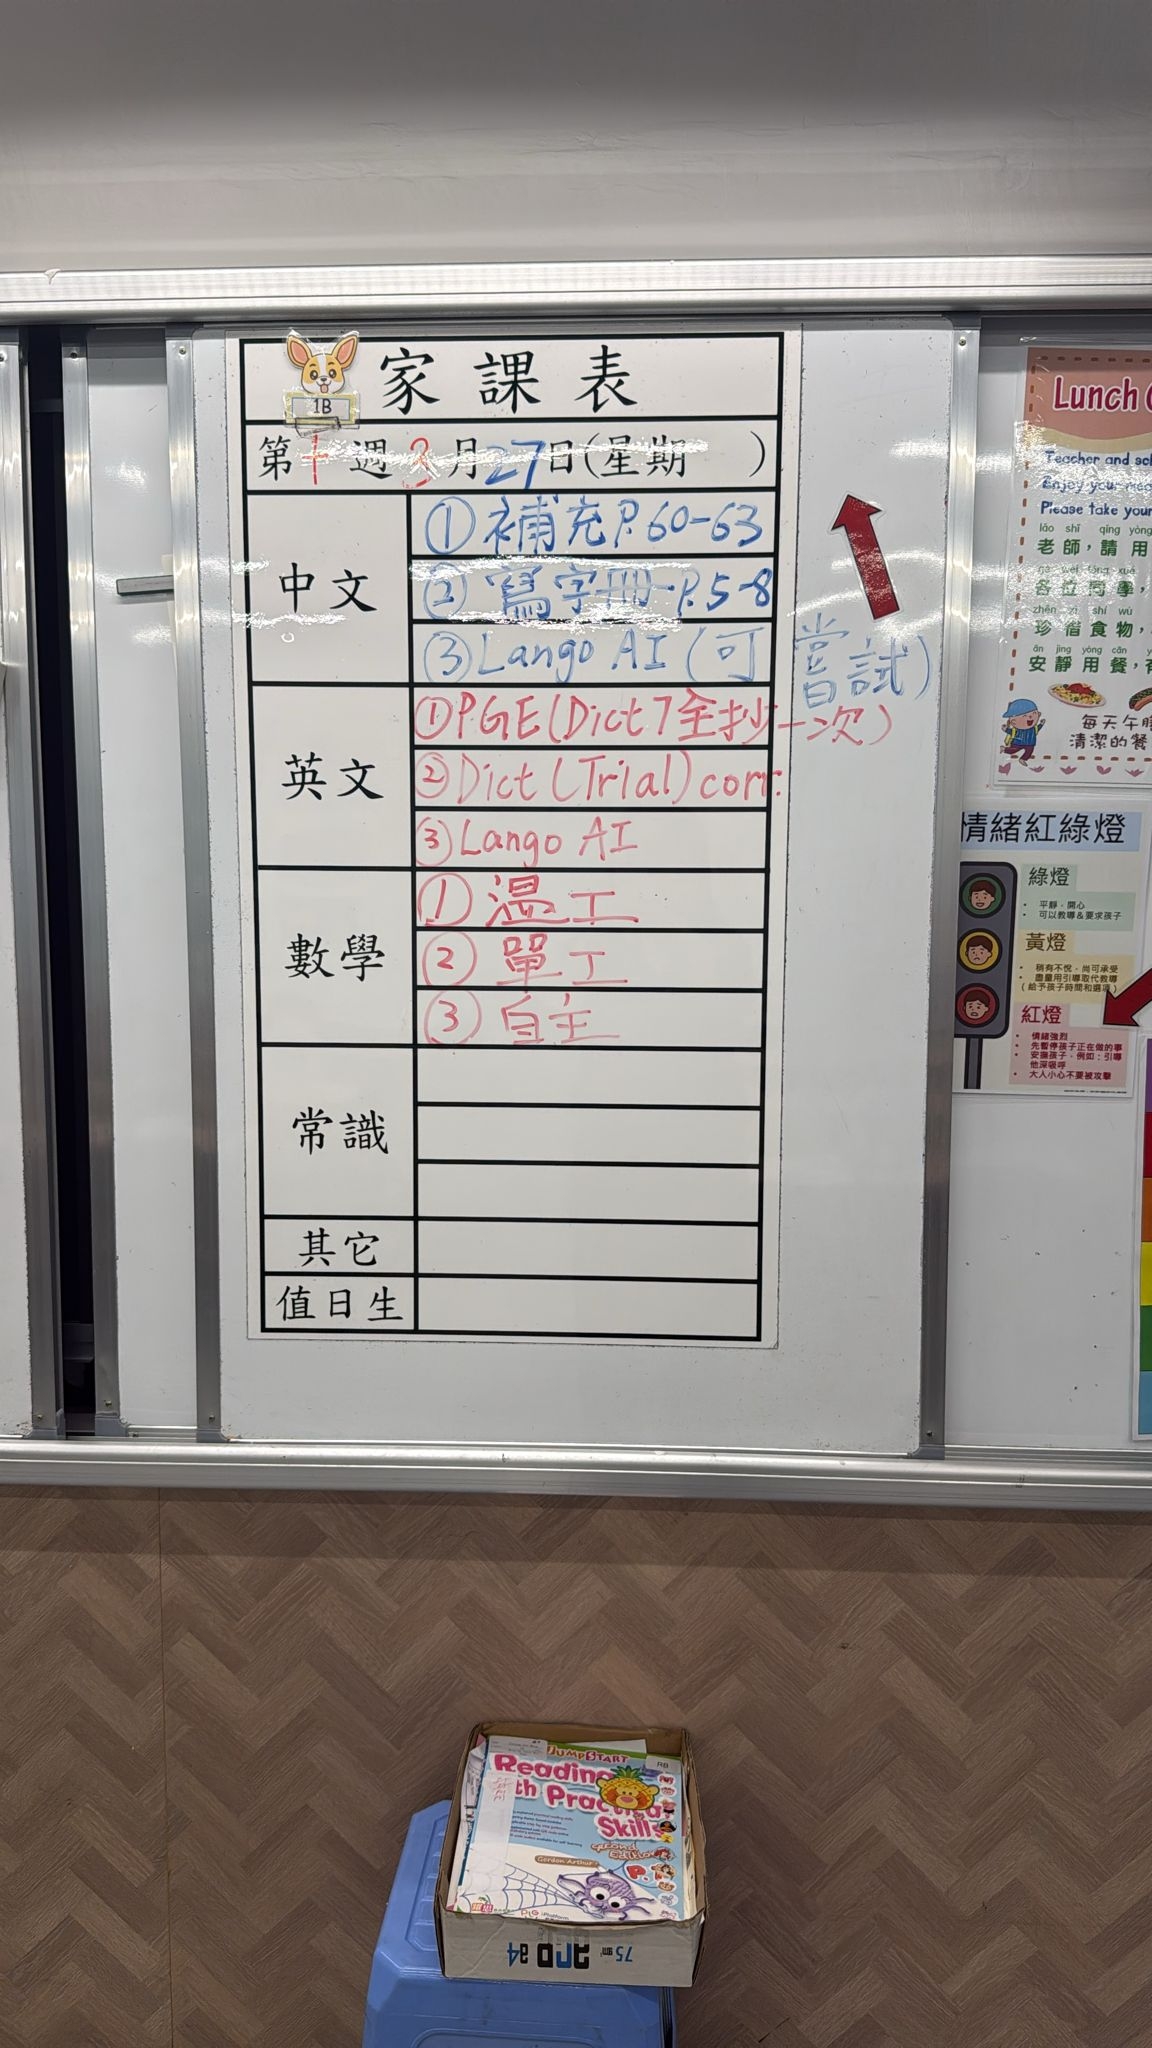 家課表
1B
第十週3月27日(星期 )
中文
①補充P.60-63
②寫字冊-P.5-8
③Lango AI (可嘗試)
英文
①P.G.E(Dict 7全抄一次)
②Dict (Trial) corr.
③Lango AI
數學
①溫工
②單工
③自主
常識
其它
值日生
Lunch
Teacher and
Enjoy your
Please take your
lǎo shī qǐng yòng
老師,請用
gè wèi tóng xué
各位同學,
zhēn xī shí wù
珍惜食物,
ān jìng yòng cān
安靜用餐,
每天午
清潔的餐
情緒紅綠燈
綠燈
• 平靜、開心
• 可以教導&要求孩子
黃燈
• 稍有不悅,尚可承受
• 盡量用引導取代教導
(給予孩子時間和選項)
紅燈
• 情緒強烈
• 先暫停孩子正在做的事
• 安撫孩子,例如:引導
他深呼吸
• 大人小心不要被攻擊
JUMPSTART
RB
Reading
with Practical
Skills
Second
Edition
Gordon Arthur
P.
a4
75